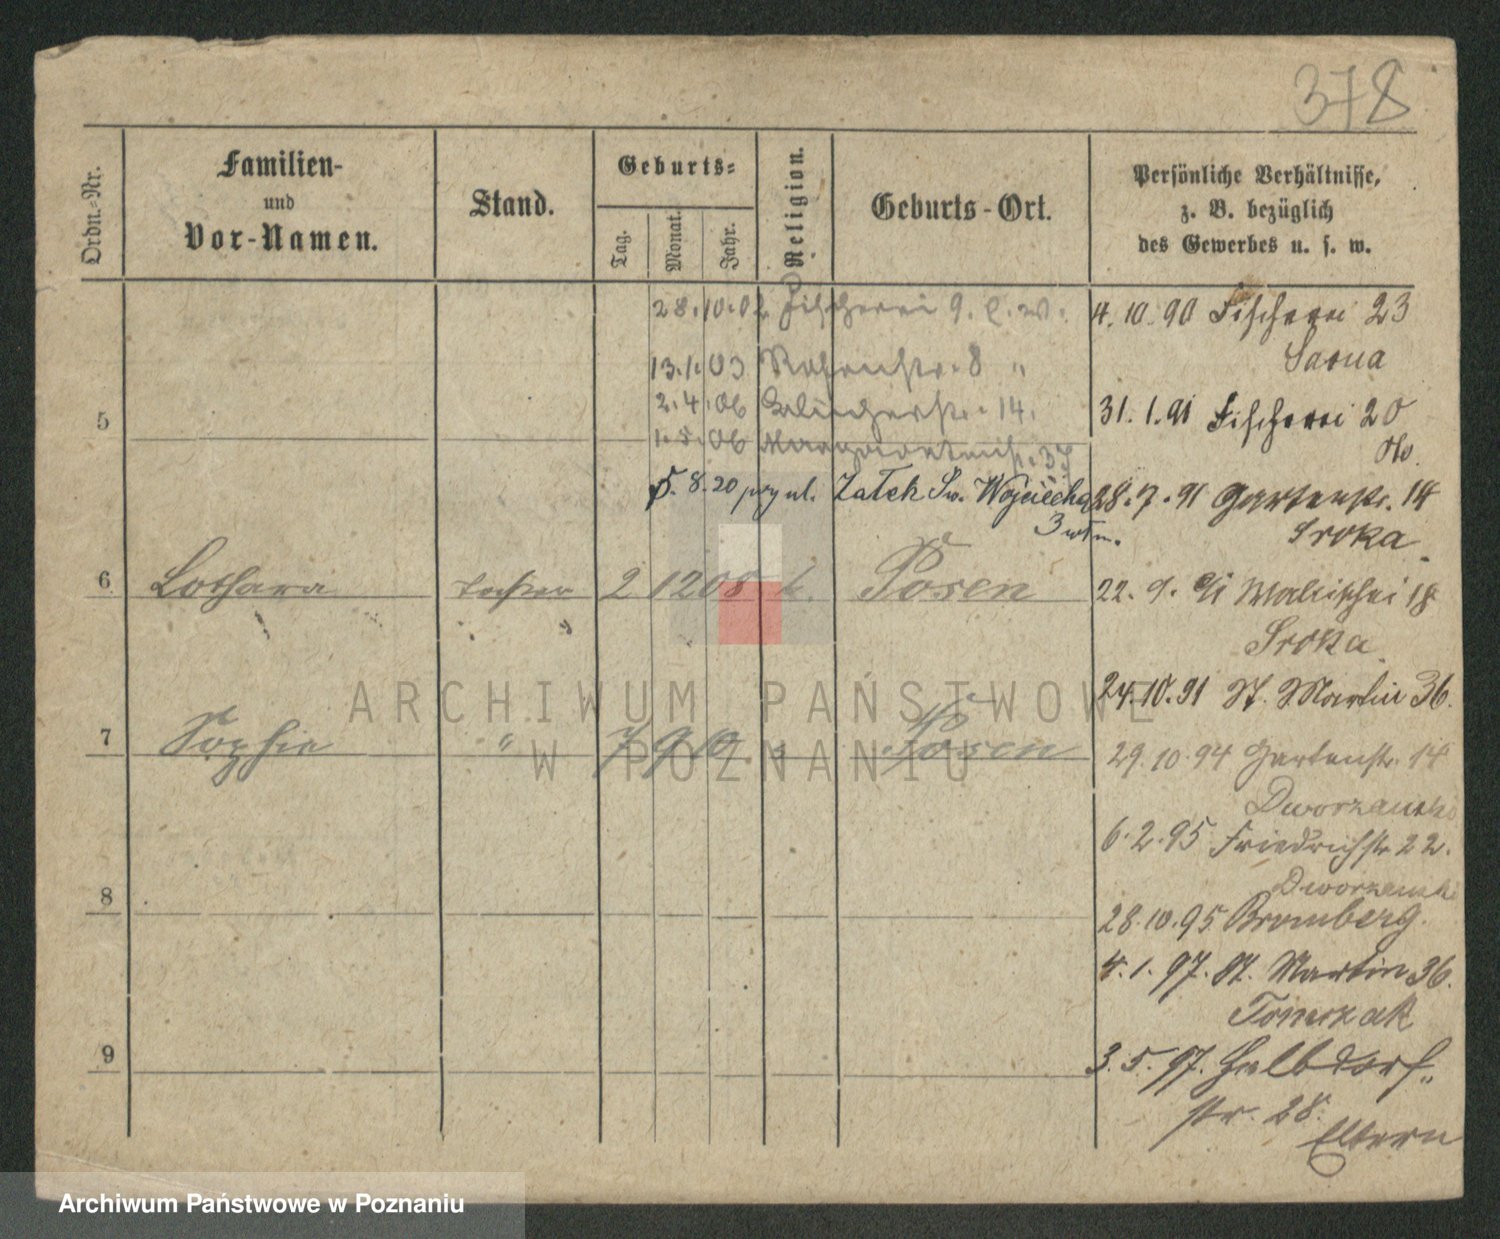 378
Ordn.-Nr.
Familien-
und
Vor-Namen.
Stand.
Geburts-
Tag.
Monat.
Jahr.
Religion.
Geburts-Ort.
Persönliche Verhältnisse,
z. B. bezüglich
des Gewerbes u. s. w.
28.10.02 Fischerei 9. l. W.
13.1.03 8 "
2.4.06 14.
1.5.06 37
5.8.20 Zułek Św. Wojciecha
3
5
6 Lothara Tochter 2 12 08 k. Posen
7 Sophie " 7 9 10 " Posen
8
9
4.10.90 Fischerei 23
Sarna
31.1.91 Fischerei 20
28.7.91 Gartenstr. 14
Sroka
22.9.91 Wallischei 18
Sroka
24.10.91 St. Martin 36.
29.10.94 Gartenstr. 14
6.2.95 Friedrichstr 22.
28.10.95 Bromberg.
4.1.97. St. Martin 36.
Tomczak
3.5.97. Halbdorf-
str. 28.
Eltern
ARCHIWUM PAŃSTWOWE
W POZNANIU
Archiwum Państwowe w Poznaniu